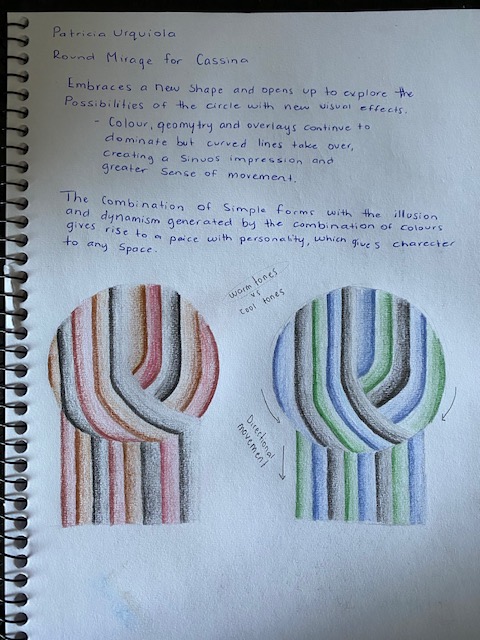 Patricia Urquiola
Round Mirage for Cassina
Embraces a new shape and opens up to explore the
Possibilities of the circle with new visual effects.
- Colour, geomytry and overlays continue to
dominate but curved lines take over,
creating a Sinuos impression and
greater Sense of movement.
The Combination of Simple forms with the illusion
and dynamism generated by the combination of colours
gives rise to a peice with personality, which gives charecter
to any space.
warm tones
vs
cool tones
Directional
movement